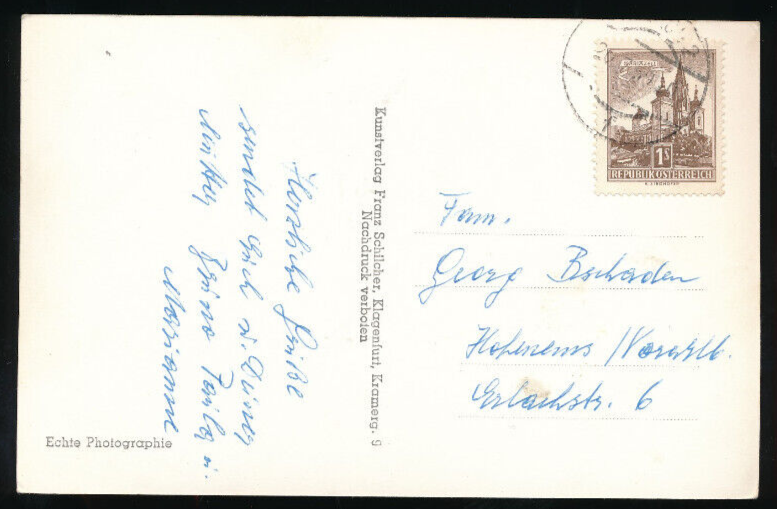 Herzliche Grüße
sendet Euch u. Deiner
Mutter
Marianne
Kunstverlag Franz Schilcher, Klagenfurt, Kramerg. 9
Nachdruck verboten
Echte Photographie
1S
REPUBLIK ÖSTERREICH
Fam.
Georg Bschaden
Hohenems / Vorarlb.
Erlachstr. 6